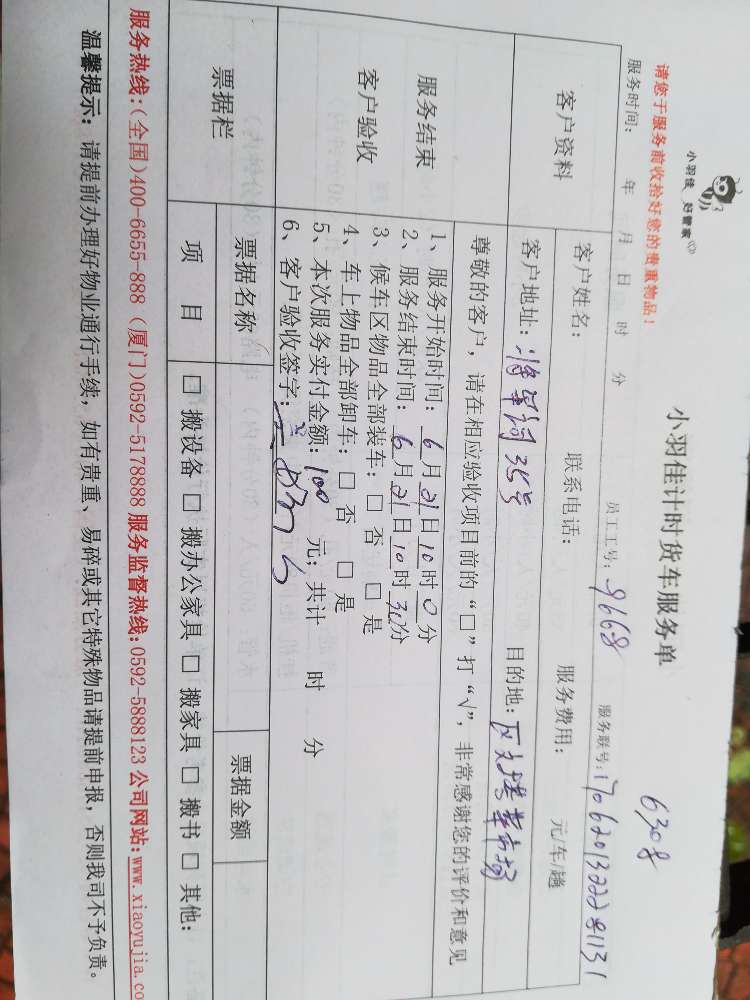 小羽佳 好管家
6308
小羽佳计时货车服务单
请您于服务前收拾好您的贵重物品！
服务时间： 年 月 日 时 分 员工工号：9668 服务联号：1706201322281131
客户资料
客户姓名： 联系电话： 服务费用： 元/车/趟
客户地址：将军祠35号 目的地：
服务结束
客户验收
尊敬的客户，请在相应验收项目前的“□”打“√”，非常感谢您的评价和意见
1、服务开始时间：6月21日10时0分
2、服务结束时间：6月21日10时30分
3、候车区物品全部装车：□ 否 □ 是
4、车上物品全部卸车：□ 否 □ 是
5、本次服务实付金额：100 元；共计 时 分
6、客户验收签字：
票据栏
票据名称 票据金额
项 目 □ 搬设备 □ 搬办公家具 □ 搬家具 □ 搬书 □ 其他：
服务热线：(全国)400-6655-888 (厦门)0592-5178888 服务监督热线：0592-5888123 公司网站：www.xiaoyujia.co
温馨提示：请提前办理好物业通行手续，如有贵重、易碎或其它特殊物品请提前申报，否则我司不予负责。